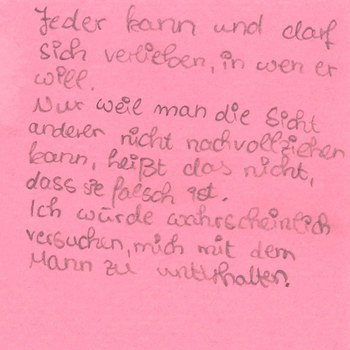 Jeder kann und darf
sich verlieben, in wen er
will.
Nur weil man die Sicht
anderer nicht nachvollziehen
kann, heißt das nicht,
dass sie falsch ist.
Ich würde wahrscheinlich
versuchen, mich mit dem
Mann zu unterhalten.